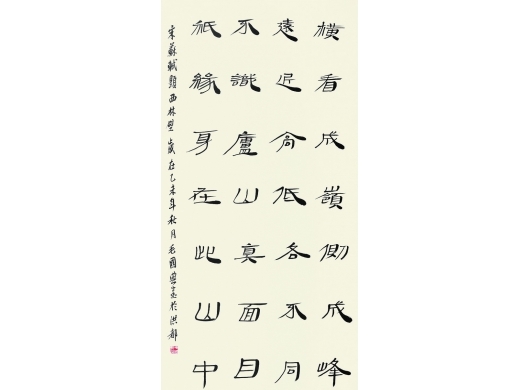 橫看成嶺側成峰
遠近高低各不同
不識廬山真面目
祇緣身在此山中
宋蘇軾題西林壁 歲在乙未年秋月毛國典書於洪都